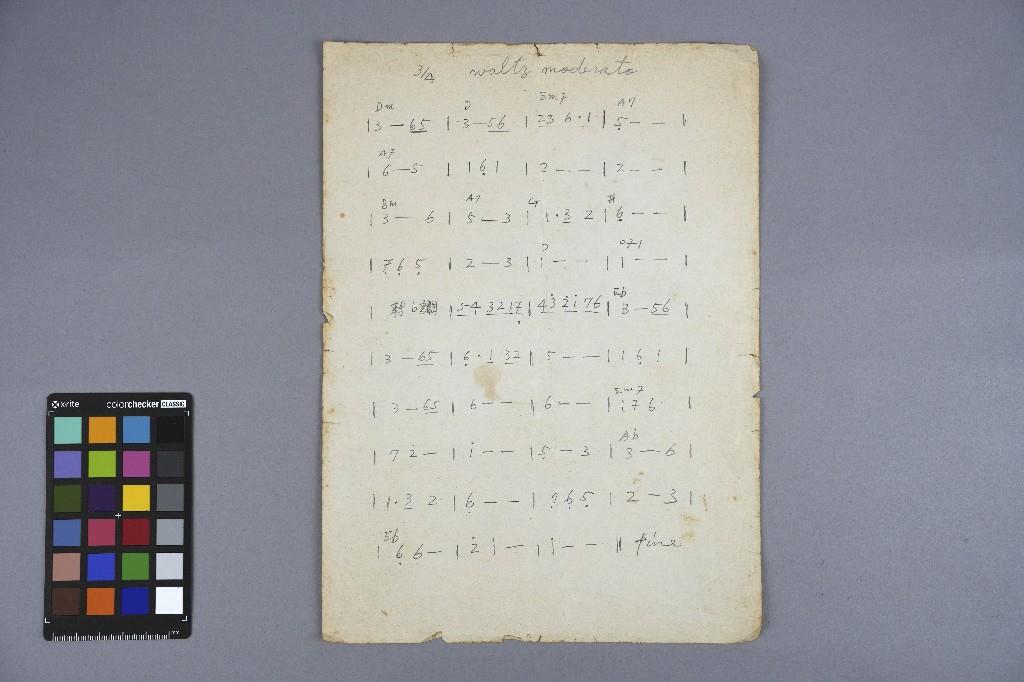 3/4 waltz moderato
Dm D Em7 A7
|3 — 65 | ·3 — 56 | 23 6·1 | 5 — — |
A7
| 6 — 5 | 1 6 1 | 2 — — | 2 — — |
Bm A7 G
| 3 — 6 | 5 — 3 | 1·3 2 | 6 — — |
D
| 7 6 5 | 2 — 3 | i — — | i — — |
Eb
| 轉 b 調 | 54 32 17 | 43 2i 76 | 3 — 56 |
| 3 — 65 | 6·1 32 | 5 — — | 1 6 1 |
Em7
| 3 — 65 | 6 — — | 6 — — | i 7 6 |
Ab
| 7 2 — | i — — | 5 — 3 | 3 — 6 |
| 1·3 2 | 6 — — | 7 6 5 | 2 — 3 |
Eb
| 6 6 — | 2 i — | i — — || fine
x-rite colorchecker CLASSIC
mm